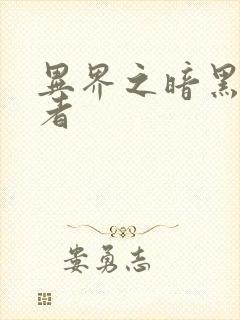 異界之暗黑
者
娄勇志